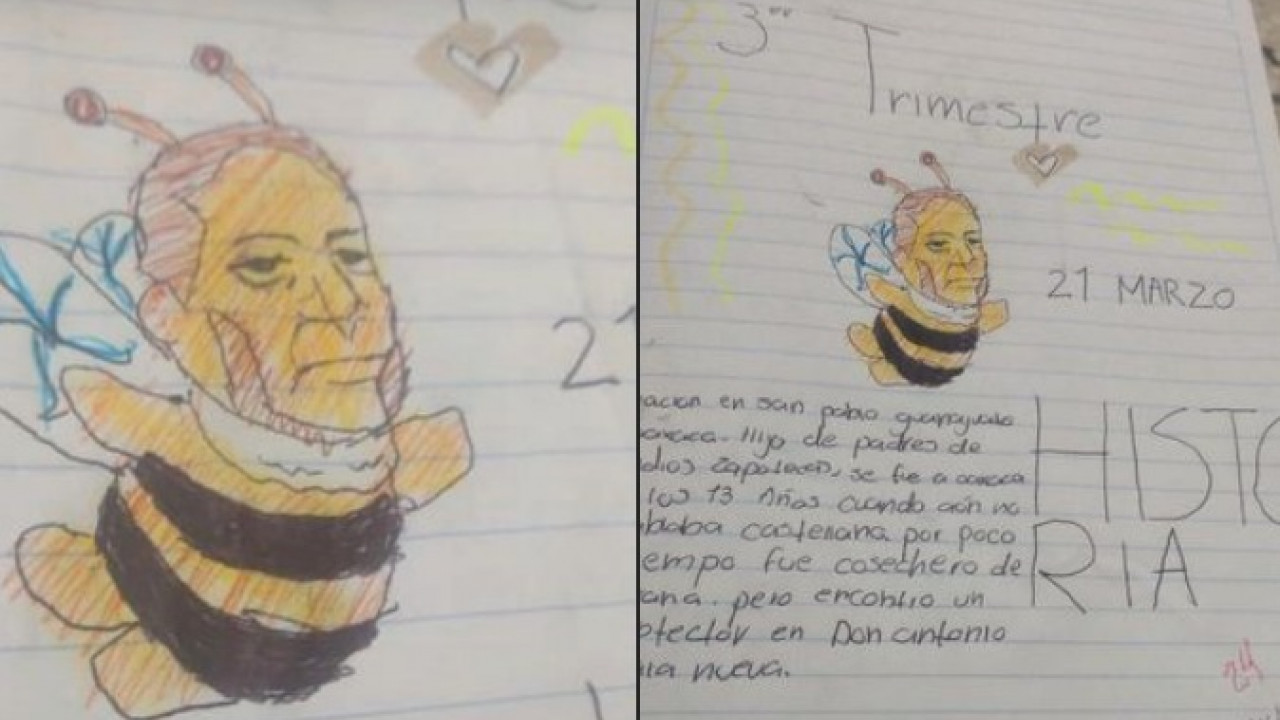 2
3er
Trimestre
21 MARZO
HISTO
RIA
acion en san pablo
Hijo de padres de
dios zapotecas, se fue a oaxaca
los 13 Años cuando aún no
blaba castellana por poco
empo fue cosechero de
ana. pero encontro un
otector en Don antonio
nueva.